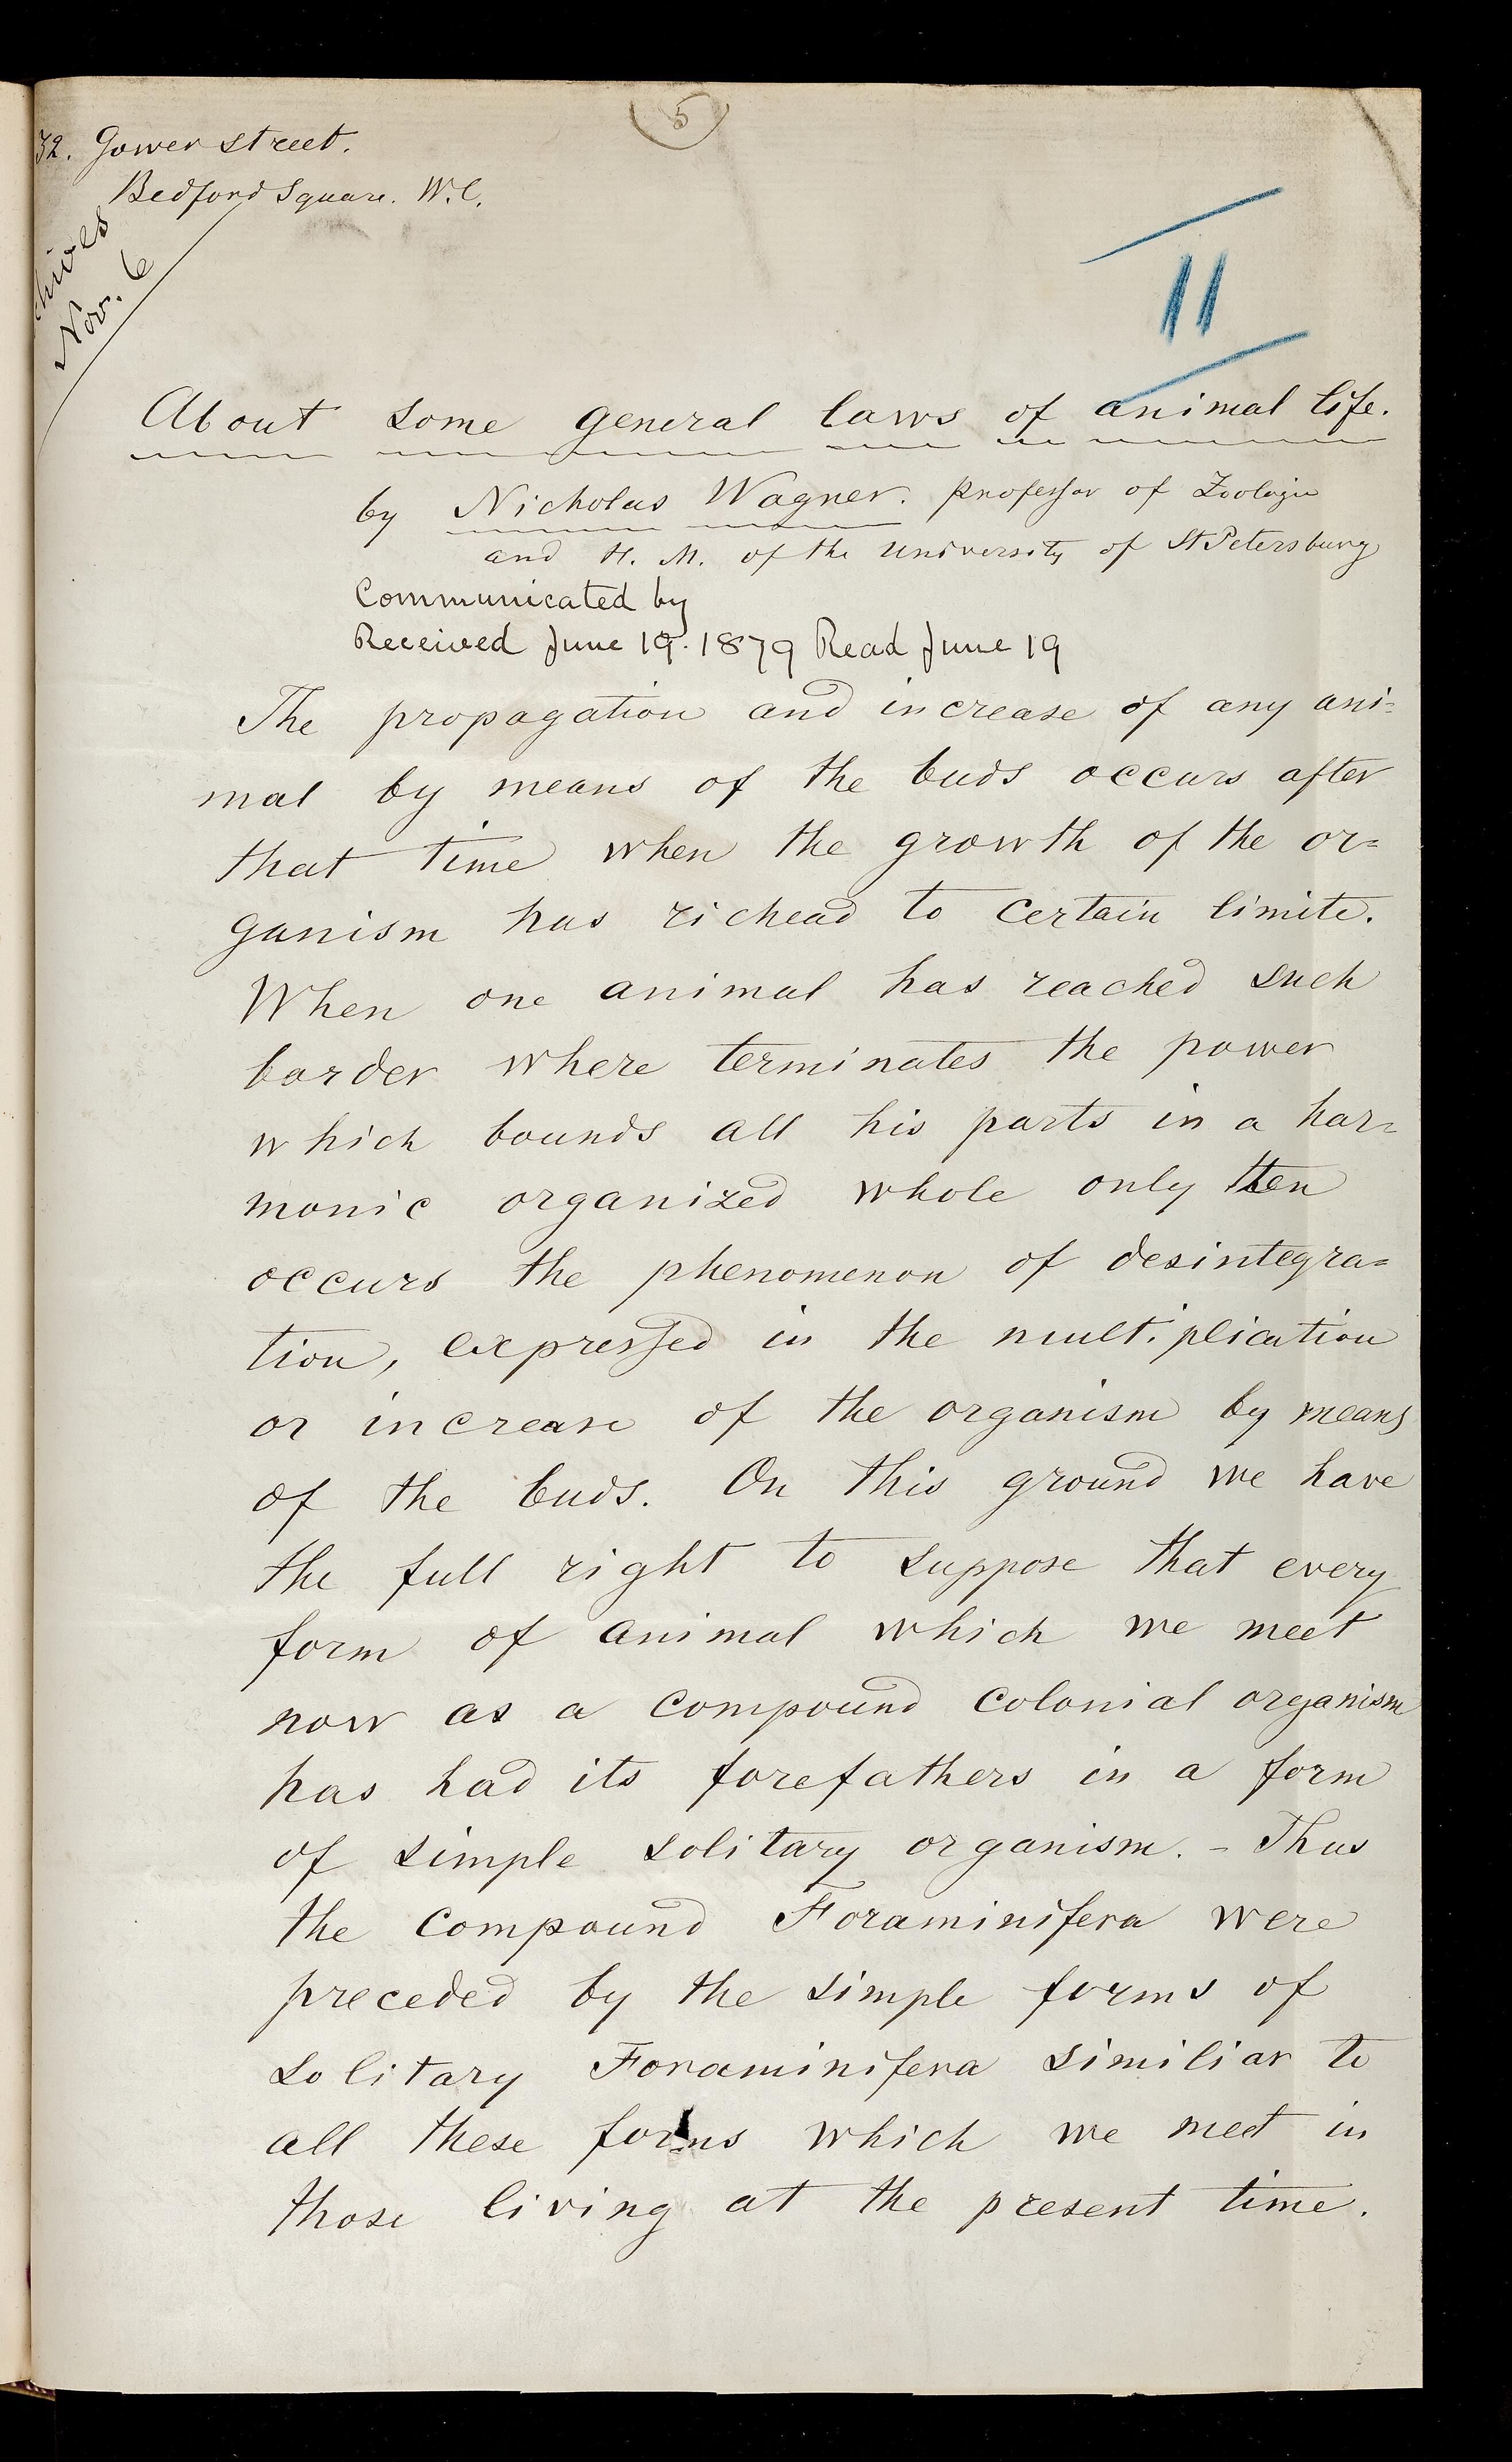 5
32. Gower street.
Bedford Square. W.C.
Nov. 6
11
About some general laws of animal life.
by Nicholas Wagner. professor of Zoologie
and H. M. of the University of St Petersburg
Communicated by
Received June 19. 1879 Read June 19
The propagation and increase of any ani=
mal by means of the buds occurs after
that time when the growth of the or=
ganism has richead to certain limite.
When one animal has reached such
border where terminates the power
which bounds all his parts in a har=
monic organized whole only then
occurs the phenomenon of desintegra=
tion, expressed in the multiplication
or increase of the organism by means
of the buds. On this ground we have
the full right to suppose that every
form of animal which we meet
now as a compound colonial organism
has had its forefathers in a form
of simple solitary organism. – Thus
the compound Foraminifera were
preceded by the simple forms of
solitary Foraminifera similiar to
all these forms which we meet in
those living at the present time.